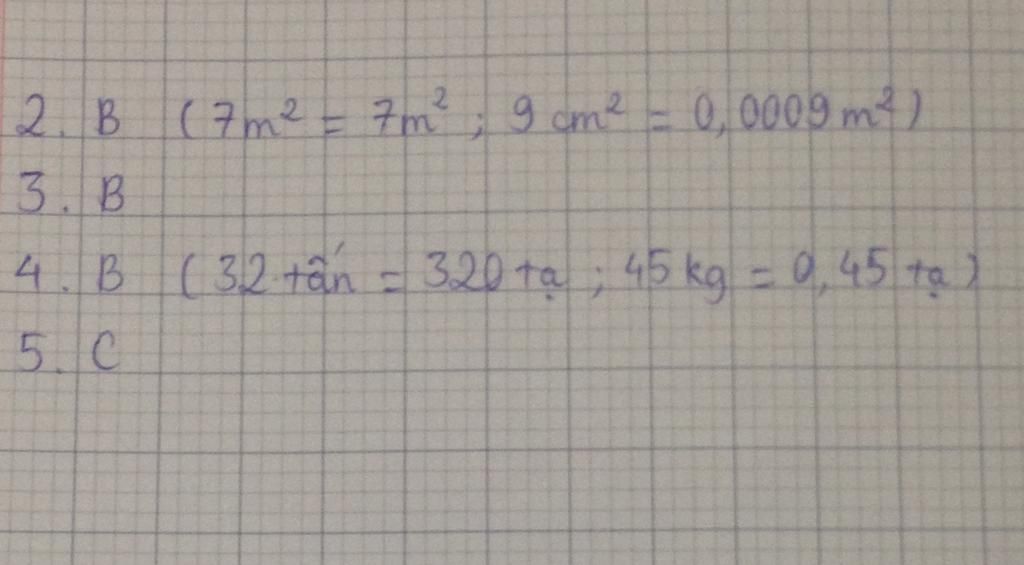 2. B (7m² = 7m² ; 9 cm² = 0,0009m²)
3. B
4. B (32 tấn = 320 tạ ; 45 kg = 0,45 tạ)
5. C